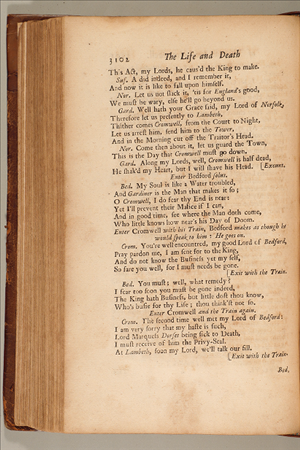 3102 The Life and Death
This Act, my Lords, he caus'd the King to make.
Suf. A did indeed, and I remember it,
And now it is like to fall upon himself.
Nor. Let us not slack it, 'tis for England's good,
We must be wary, else he'll go beyond us.
Gard. Well hath your Grace said, my Lord of Norfolk,
Therefore let us presently to Lambeth,
Thither comes Cromwell, from the Court to Night.
Let us arrest him, send him to the Tower,
And in the Morning cut off the Traitor's Head.
Nor. Come then about it, let us guard the Town,
This is the Day that Cromwell must go down.
Gard. Along my Lords, well, Cromwell is half dead,
He shak'd my Heart, but I will shave his Head. [Exeunt.
Enter Bedford solus.
Bed. My Soul is like a Water troubled,
And Gardiner is the Man that makes it so;
O Cromwell, I do fear thy End is near:
Yet I'll prevent their Malice if I can,
And in good time, see where the Man doth come,
Who little knows how near's his Day of Doom.
Enter Cromwell with his Train, Bedford makes as though he
would speak to him: He goes on.
Crom. You're well encountred, my good Lord of Bedford,
Pray pardon me, I am sent for to the King,
And do not know the Business yet my self,
So fare you well, for I must needs be gone.
[Exit with the Train.
Bed. You must; well, what remedy?
I fear too soon you must be gone indeed,
The King hath Business, but little dost thou know,
Who's busie for thy Life; thou think'st not so.
Enter Cromwell and the Train again.
Crom. The second time well met my Lord of Bedford:
I am very sorry that my haste is such,
Lord Marquess Dorset being sick to Death,
I must receive of him the Privy-Seal.
At Lambeth, soon my Lord, we'll talk our fill.
[Exit with the Train.
Bed.